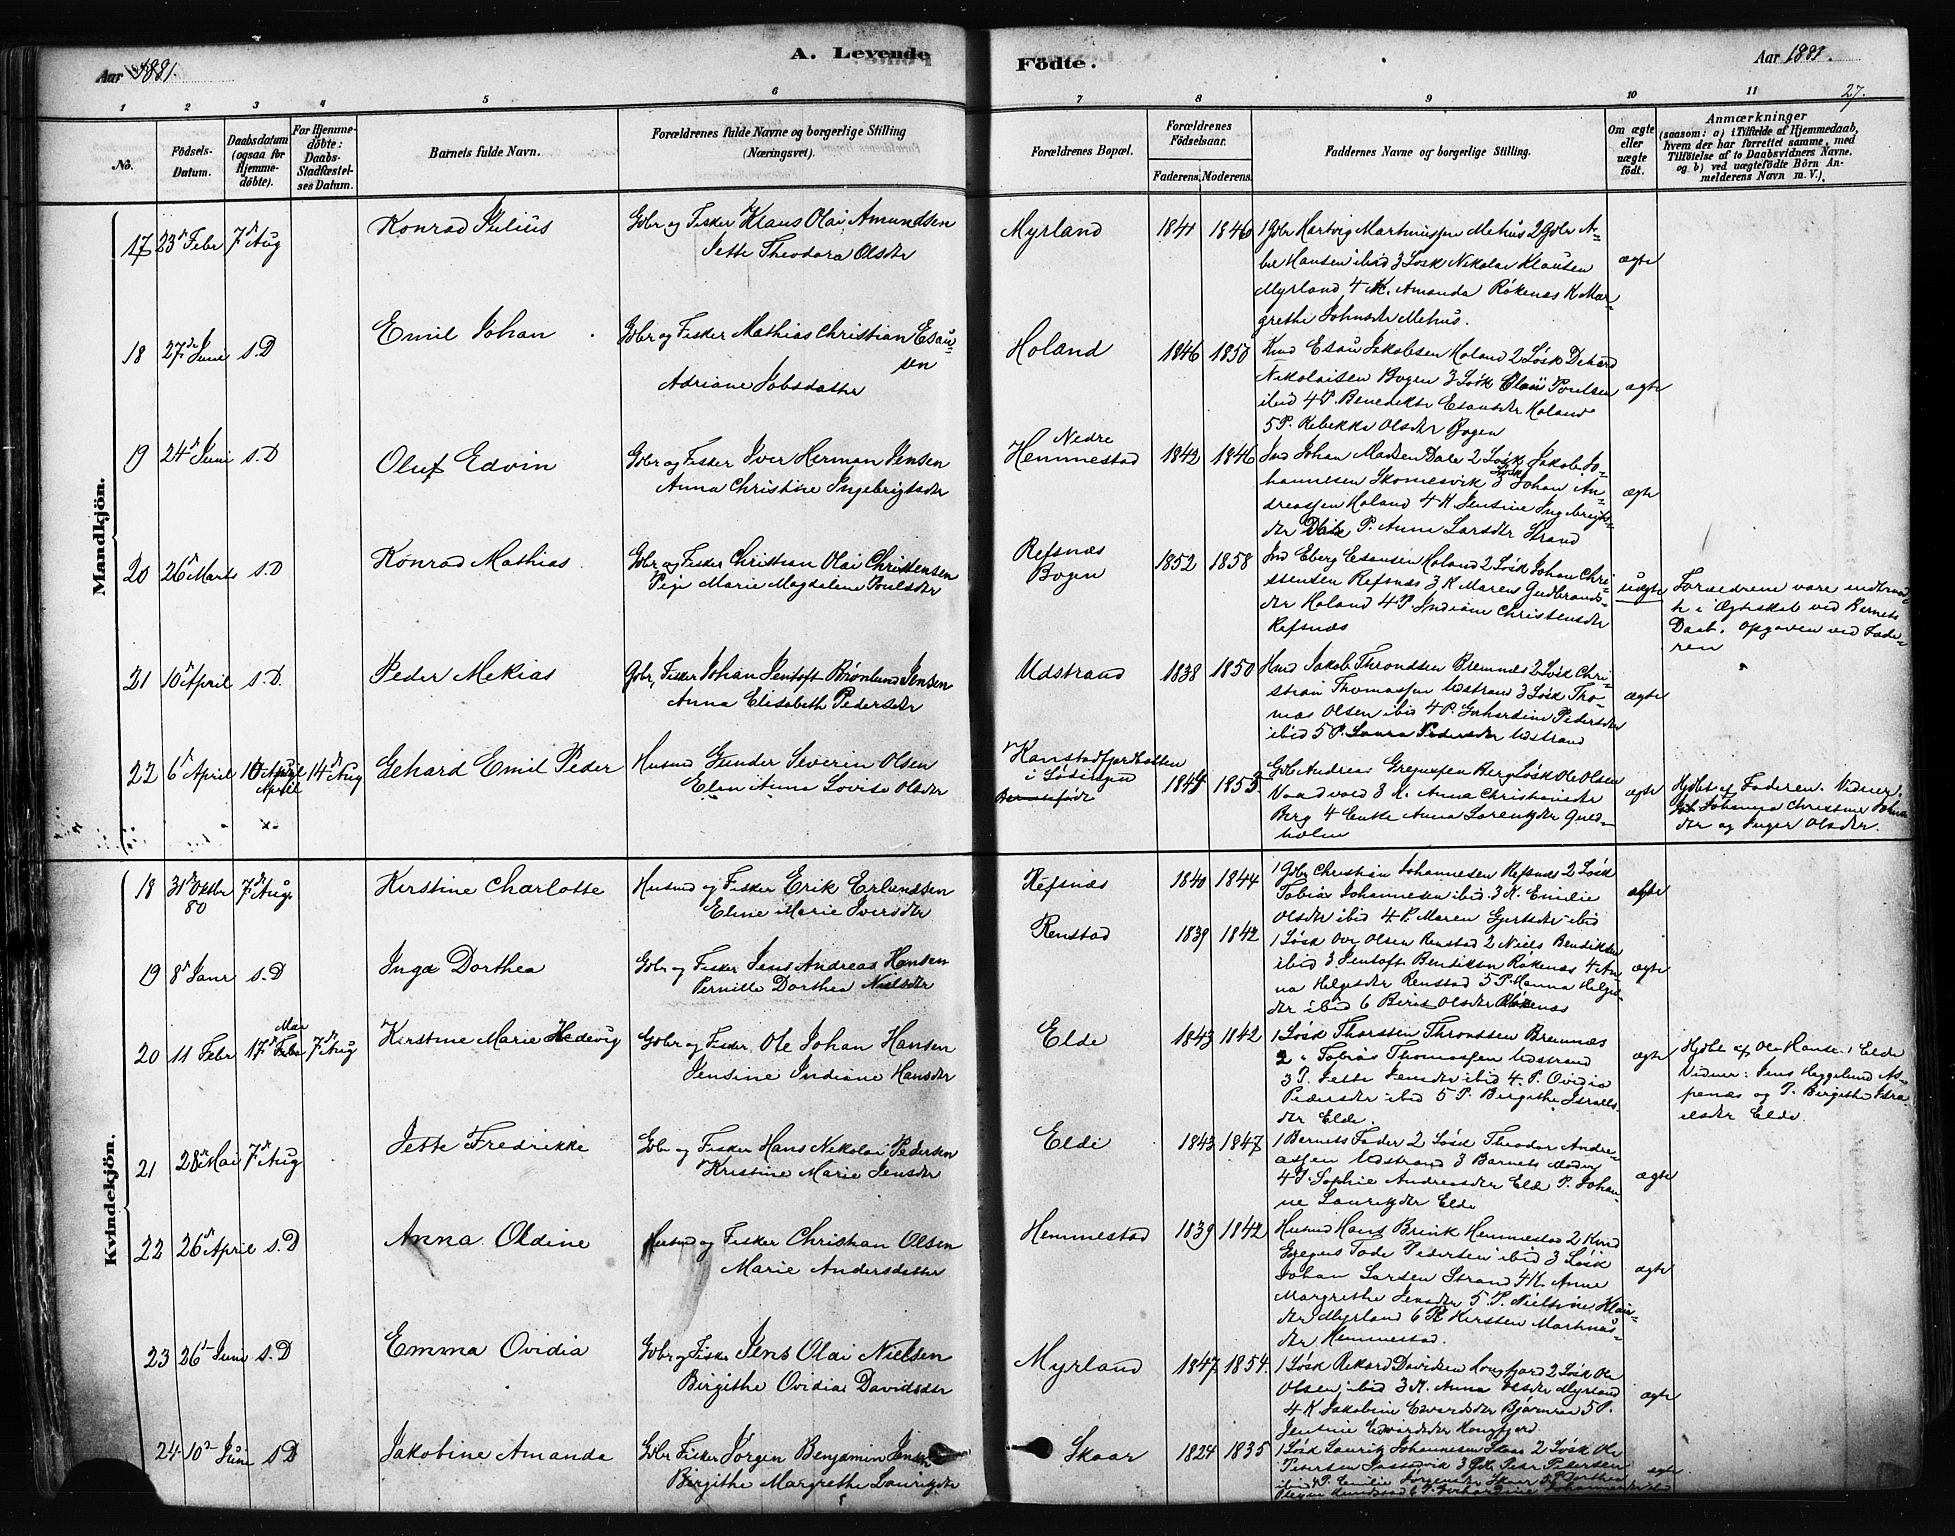 Aar 1881.
A. Levende
Födte.
Aar 1881.
27.
1 2 3 4 5 6 7 8 9 10 11
No.
Födsels-Datum.
Daabsdatum (ogsaa for Hjemme-döbte).
For Hjemme-döbte: Daabs-Stadfæstel-ses Datum.
Barnets fulde Navn.
Forældrenes fulde Navne og borgerlige Stilling
(Næringsvei).
Forældrenes Bopæl.
Forældrenes Födselsaar.
Faderens. Moderens.
Faddernes Navne og borgerlige Stilling.
Om ægte eller uægte födt.
Anmærkninger
(saasom: a) i Tilfælde af Hjemmedaab,
hvem der har forrettet samme, med
Tilföielse af to Daabsvidners Navne.
og b) ved uægtefödte Börn An-
melderens Navn m. V.).
Mandkjön.
17 23 Febr 7 Aug Konrad Julius Gbr og Fisker Klaus Olai Amundsen
Jette Theodora Olsdtr
Myrland 1841 1846 1 Gbr Hartvig Martinussen Mehus 2 Gbr A-
bel Hansen ibid 3 Løsk Nikolai Klausen
Myrland 4 K. Amanda Røkenæs K Mar-
grethe Johnsdtr Mehus.
ægte
18 27 Juni s. D Emil Johan Gbr og Fisker Mathias Christian Esau-
sen
Adriane Jobsdatter
Holand 1846 1850 Esau Jakobsen Holand 2 Løsk
Nikolaisen Bogen 3 Løsk Poulsen
ibid 4 P. Benedikte Esausdtr Holand
5 P. Rebekka Olsdtr Bogen
ægte
19 24 Juni s. D Oluf Edvin Gbr og Fisker Iver Herman Jensen
Anna Christine Ingebrigtsdtr
Nedre
Hemmestad 1842 1846 Johan Madsen Dale 2 Løsk Jakob Jo-
hannesen Skomesvik 3 Løsk Johan An-
dreassen Holand 4 K Jensine Ingebrigts-
dtr Dale P. Anna Larsdtr Strand
ægte
20 26 Marts s. D Konrad Mathias Gbr og Fisker Christian Olai Christensen
Pige Marie Magdalene Poulsdtr
Refsnæs
Bogen 1852 1858 Eberg Esausen Holand 2 Løsk Johan Chri-
stensen Refsnæs 3 K Maren Gudbrands-
dtr Holand 4 P. Indiane Christensdtr
Refsnæs
uægte
Forældrene vare indtraadt
i Ægteskab ved Barnets
Daab. Opgaven ved Fade-
ren
21 10 April s. D. Peder Mekias Gbr, Fisker Johan Jentoft Brønlund Jensen
Anna Elisabeth Pedersdtr
Udstrand 1838 1850 Jakob Throndsen Bremnes 2 Løsk Chri-
stian Thomassen Udstrand 3 Løsk Tho-
mas Olsen ibid 4 P. Pedersdtr
ibid 5 P Laura Pedersdtr Udstrand
ægte
22 6 April April 14 Aug Gehard Emil Peder Husmd Gunder Severin Olsen
Elen Anna Lovise Olsdtr
Kanstadfjordbotten
i Lødingen
1849 1853 Gbr Andreas Gregussen Berg Løsk Ole Olsen
Vaadvold 3 K. Anna Christiansdtr
Berg 4 Enke Anna Lorentzdtr
holm
ægte
Hjdbt af Faderen. Vidner.
Johanna Christine Johns
dtr og Inger Olsdtr.
Kvindekjön.
18 31 Oktbr 80 7 Aug. Kirstine Charlotte Husmd og Fisker Erik Erlandsen
Eline Marie Iversdtr
Refsnæs 1840 1844 1 Gbr Christian Johannesen Refsnæs 2 Løsk
Tobias Johannesen ibid. 3 K. Emilie
Olsdtr ibid 4 P. Maren Gjertsdtr ibid
ægte
19 8 Janr s. D Inga Dorthea Gbr og Fisker Jens Andreas Hansen
Pernille Dorthea Nielsdtr
Renstad 1839 1842 1 Løsk Ove Olsen Renstad 2 Niels Bendiksen
ibid 3 Jentoft Bentiksen Røkenæs 4 An-
na Helgesdtr Renstad 5 P. Hanna Helges-
dtr ibid 6 Berit Olsdtr Røkenæs
ægte
20 11 Febr 17 Febr Mai 7 Aug Kirstine Marie Hedevig Gbr og Fisker Ole Johan Hansen
Jensine Indiane Hansdtr
Elde 1843 1842 1 Løsk Thorsten Throndsen Bremnæs
2 " Tobias Thomassen Udstrand
3 P. Jette Jensdtr ibid 4. P. Ovidia
Pedersdtr ibid 5 P. Birgithe Israels-
dtr Elde.
ægte
Hjdbt af Ole Hansen Elde
Vidner: Jens Heggelund As-
penæs og P. Birgithe Isra-
elsdtr Elde.
21 28 Mai 7 Aug Jette Fredrikke Gbr og Fisker Hans Nikolai Pedersen
Kristine Marie Jensdtr
Elde 1843 1847 1 Barnets Fader 2 Løsk Theodor Andre-
assen Udstrand 3 Barnets Moder
4 P. Sophie Andreasdtr Elde P. Johan-
ne Lauritzdtr Elde
ægte
22 26 April s. D Anna Oldine Husmd og Fisker Christian Olsen
Marie Andersdatter
Hemmestad 1839 1842 Husmd Hans Brink Hemmestad 2
Gregus Tode Pedersen ibid 3 Løsk
Johan Larsen Strand 4 K. Anne
Margrethe Jensdtr 5. P. Nielsine Klaus-
dtr Myrland 6 P. Kirsten Martinus-
dtr Hemmestad.
ægte
23 26 Juni s. D Emma Ovidia Gbr og Fisker Jens Olai Nielsen
Birgithe Ovidia Davidsdtr
Myrland 1847 1854. 1 Løsk Rikard Davidsen Kongsfjord 2 Løsk Ole
Olsen ibid 3 K. Anna Olsdtr Myrland
4 K Jakobine Edvardsdtr Bjørnraa 5 P.
Jensine Edvardsdtr
ægte
24 10 Juni s D Jakobine Amanda Gbr Fisker Jørgen Benjamin
Birgithe Margrethe Lauritzdtr
Skaar 1824 1835 1 Løsk Lauritz Johannesen Skaar 2 Løsk Ole
Petersen 3 Gbr Peter Pedersen
ibid 4 P. Emilie Jørgensdtr Skaar 5 P Dorthea
ægte